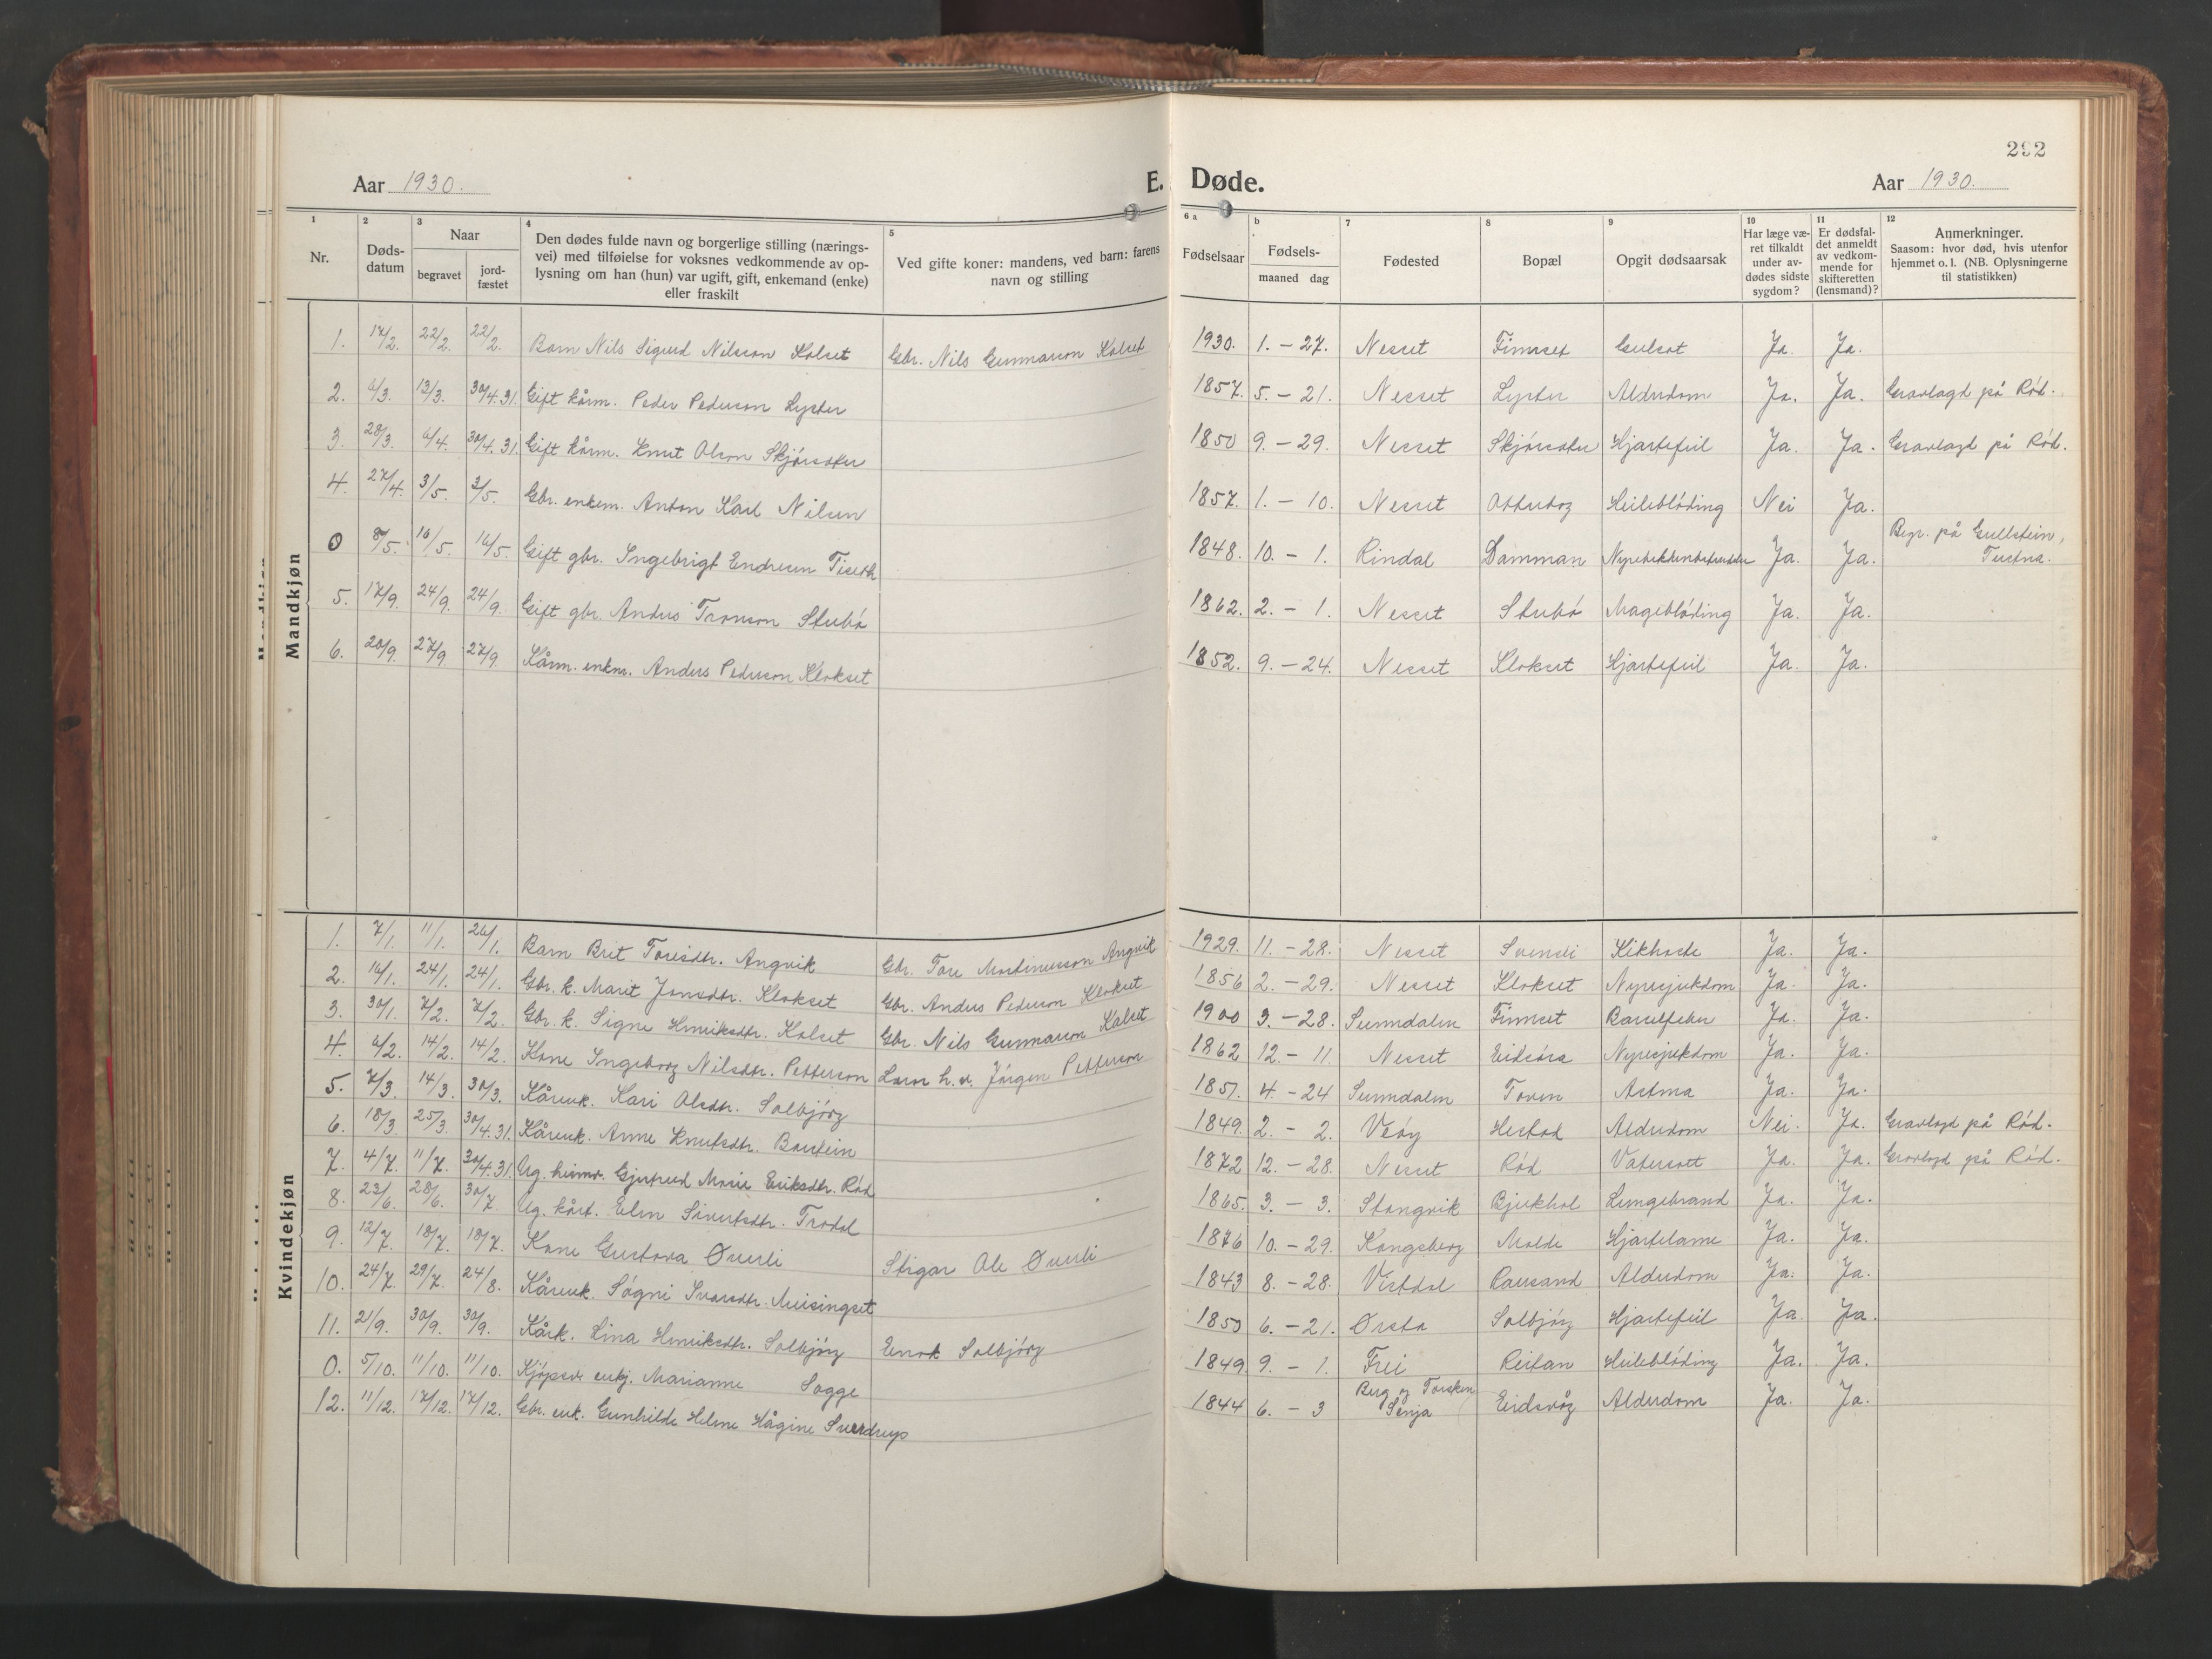 292
Aar 1930.
E. Døde.
Aar 1930.
1 Nr.
2 Døds-datum
3 Naar
begravet
jord-fæstet
4 Den dødes fulde navn og borgerlige stilling (nærings-
vei) med tilføielse for voksnes vedkommende av op-
lysning om han (hun) var ugift, gift, enkemand (enke)
eller fraskilt
5 Ved gifte koner: mandens, ved barn: farens
navn og stilling
6 a Fødselsaar
b Fødsels-
maaned dag
7 Fødested
8 Bopæl
9 Opgit dødsaarsak
10 Har læge væ-
ret tilkaldt
under av-
dødes sidste
sygdom?
11 Er dødsfal-
det anmeldt
av vedkom-
mende for
skifteretten
(lensmand)?
12 Anmerkninger.
Saasom: hvor død, hvis utenfor
hjemmet o. l. (NB. Oplysningerne
til statistikken)
Mandkjøn
1. 17/2. 22/2. 22/2. Barn Nils Sigurd Nilsson Kolset Gbr. Nils Gunnarson Kolset 1930. 1. - 27. Nesset Finnset Gulsot Ja. Ja.
2. 6/3. 13/3. 30/4.31. Gift kårm. Peder Pederson Lyster 1857. 5. - 21. Nesset Lyster Alderdom Ja. Ja. Gravlagd på Rød.
3. 28/3. 6/4. 30/4.31. Gift kårm. Knut Olson Skjørsæter 1850 9. - 29. Nesset Hjartefeil Ja. Ja. Gravlagd på Rød.
4. 27/4. 3/5. 3/5. Gbr. enkem. Anton Karl Nilsen 1857. 1. - 10. Nesset Heilebløding Nei Ja.
0 8/5. 16/5. 16/5. Gift gbr. Ingebrigt Endresen Tiseth 1848. 10. - 1. Rindal Damman Ja. Ja. Begr. på Gullstein,
Tustna.
5. 17/9. 24/9. 24/9. Gift gbr. Anders Tronson Stubø 1862. 2. - 1. Nesset Stubø Magebløding Ja. Ja.
6. 20/9. 27/9 27/9 Kårm. enkm. Anders Pederson Klokset 1852. 9. - 24. Nesset Klokset Hjartefeil Ja. Ja.
Kvindekjøn
1. 7/1. 11/1. 26/1. Barn Brit Toresdtr. Angvik Gbr. Tore Martinusson Angvik 1929. 11. - 28. Nesset Svensli Kikhoste Ja. Ja.
2. 16/1. 24/1. 24/1. Gbr. k. Marit Jonsdtr. Klokset Gbr. Anders Pederson Klokset 1856 2. - 29. Nesset Klokset Nyresjukdom Ja. Ja.
3. 30/1. 7/2. 7/2. Gbr. k. Signe Henriksdtr. Kolset Gbr. Nils Gunnarson Kolset 1900 3. - 28. Sunndalen Finnset Barselfeber Ja. Ja.
4. 6/2. 14/2. 14/2. Kone Ingeborg Nilsdtr. Petterson Jørgen Petterson 1862 12. - 11. Nesset Eidsøra Nyresjukdom Ja. Ja.
5. 7/3. 14/3. 30/3. Kårenk. Kari Olsdtr. Solbjørg 1851. 4. - 24 Sunndalen Toven Astma Ja. Ja.
6. 18/3. 25/3. 30/4.31. Kårenk. Anne Knutsdtr. Boustein 1849. 2. - 2. Veøy Hestad Alderdom Nei. Ja. Gravlagd på Rød.
7. 4/7. 11/7. 30/4.31. Ug. heimv. Gjertrud Marie Eriksdtr. Rød 1872 12. - 28. Nesset Rød Vatersott Ja. Ja. Gravlagd på Rød.
8. 23/6. 28/6. 30/7. Ug. kårt. Elen Sivertsdtr. Trodal 1865. 3. - 3. Stangvik Bjerkhol Lungebrand Ja. Ja.
9. 12/7. 18/7. 18/7. Kone Gustava Øverli Stigar Ole Øverli 1876 10. - 29. Kongsberg Molde Hjartelame Ja. Ja.
10. 24/7. 29/7. 24/8. Kårenk. Søgni Ivarsdtr. Meisingset 1843 8. - 28. Vistdal Rausand Alderdom Ja. Ja.
11. 21/9. 30/9. 30/9. Kårk. Lina Henriksdtr. Solbjørg Enok Solbjørg 1853 6. - 21. Ørsta Solbjørg Hjartefeil Ja Ja.
0. 5/10. 11/10. 11/10. Kjøpm. enkj. Marianne Sogge 1849 9. - 1. Frei Reitan Heilebløding Ja. Ja.
12. 11/12. 17/12. 17/12. Gbr. enk. Gunhilde Helene Hågine Sverdrup 1844 6. - 3 Berg og Torsken
Senja Eidsvåg Alderdom Ja. Ja.